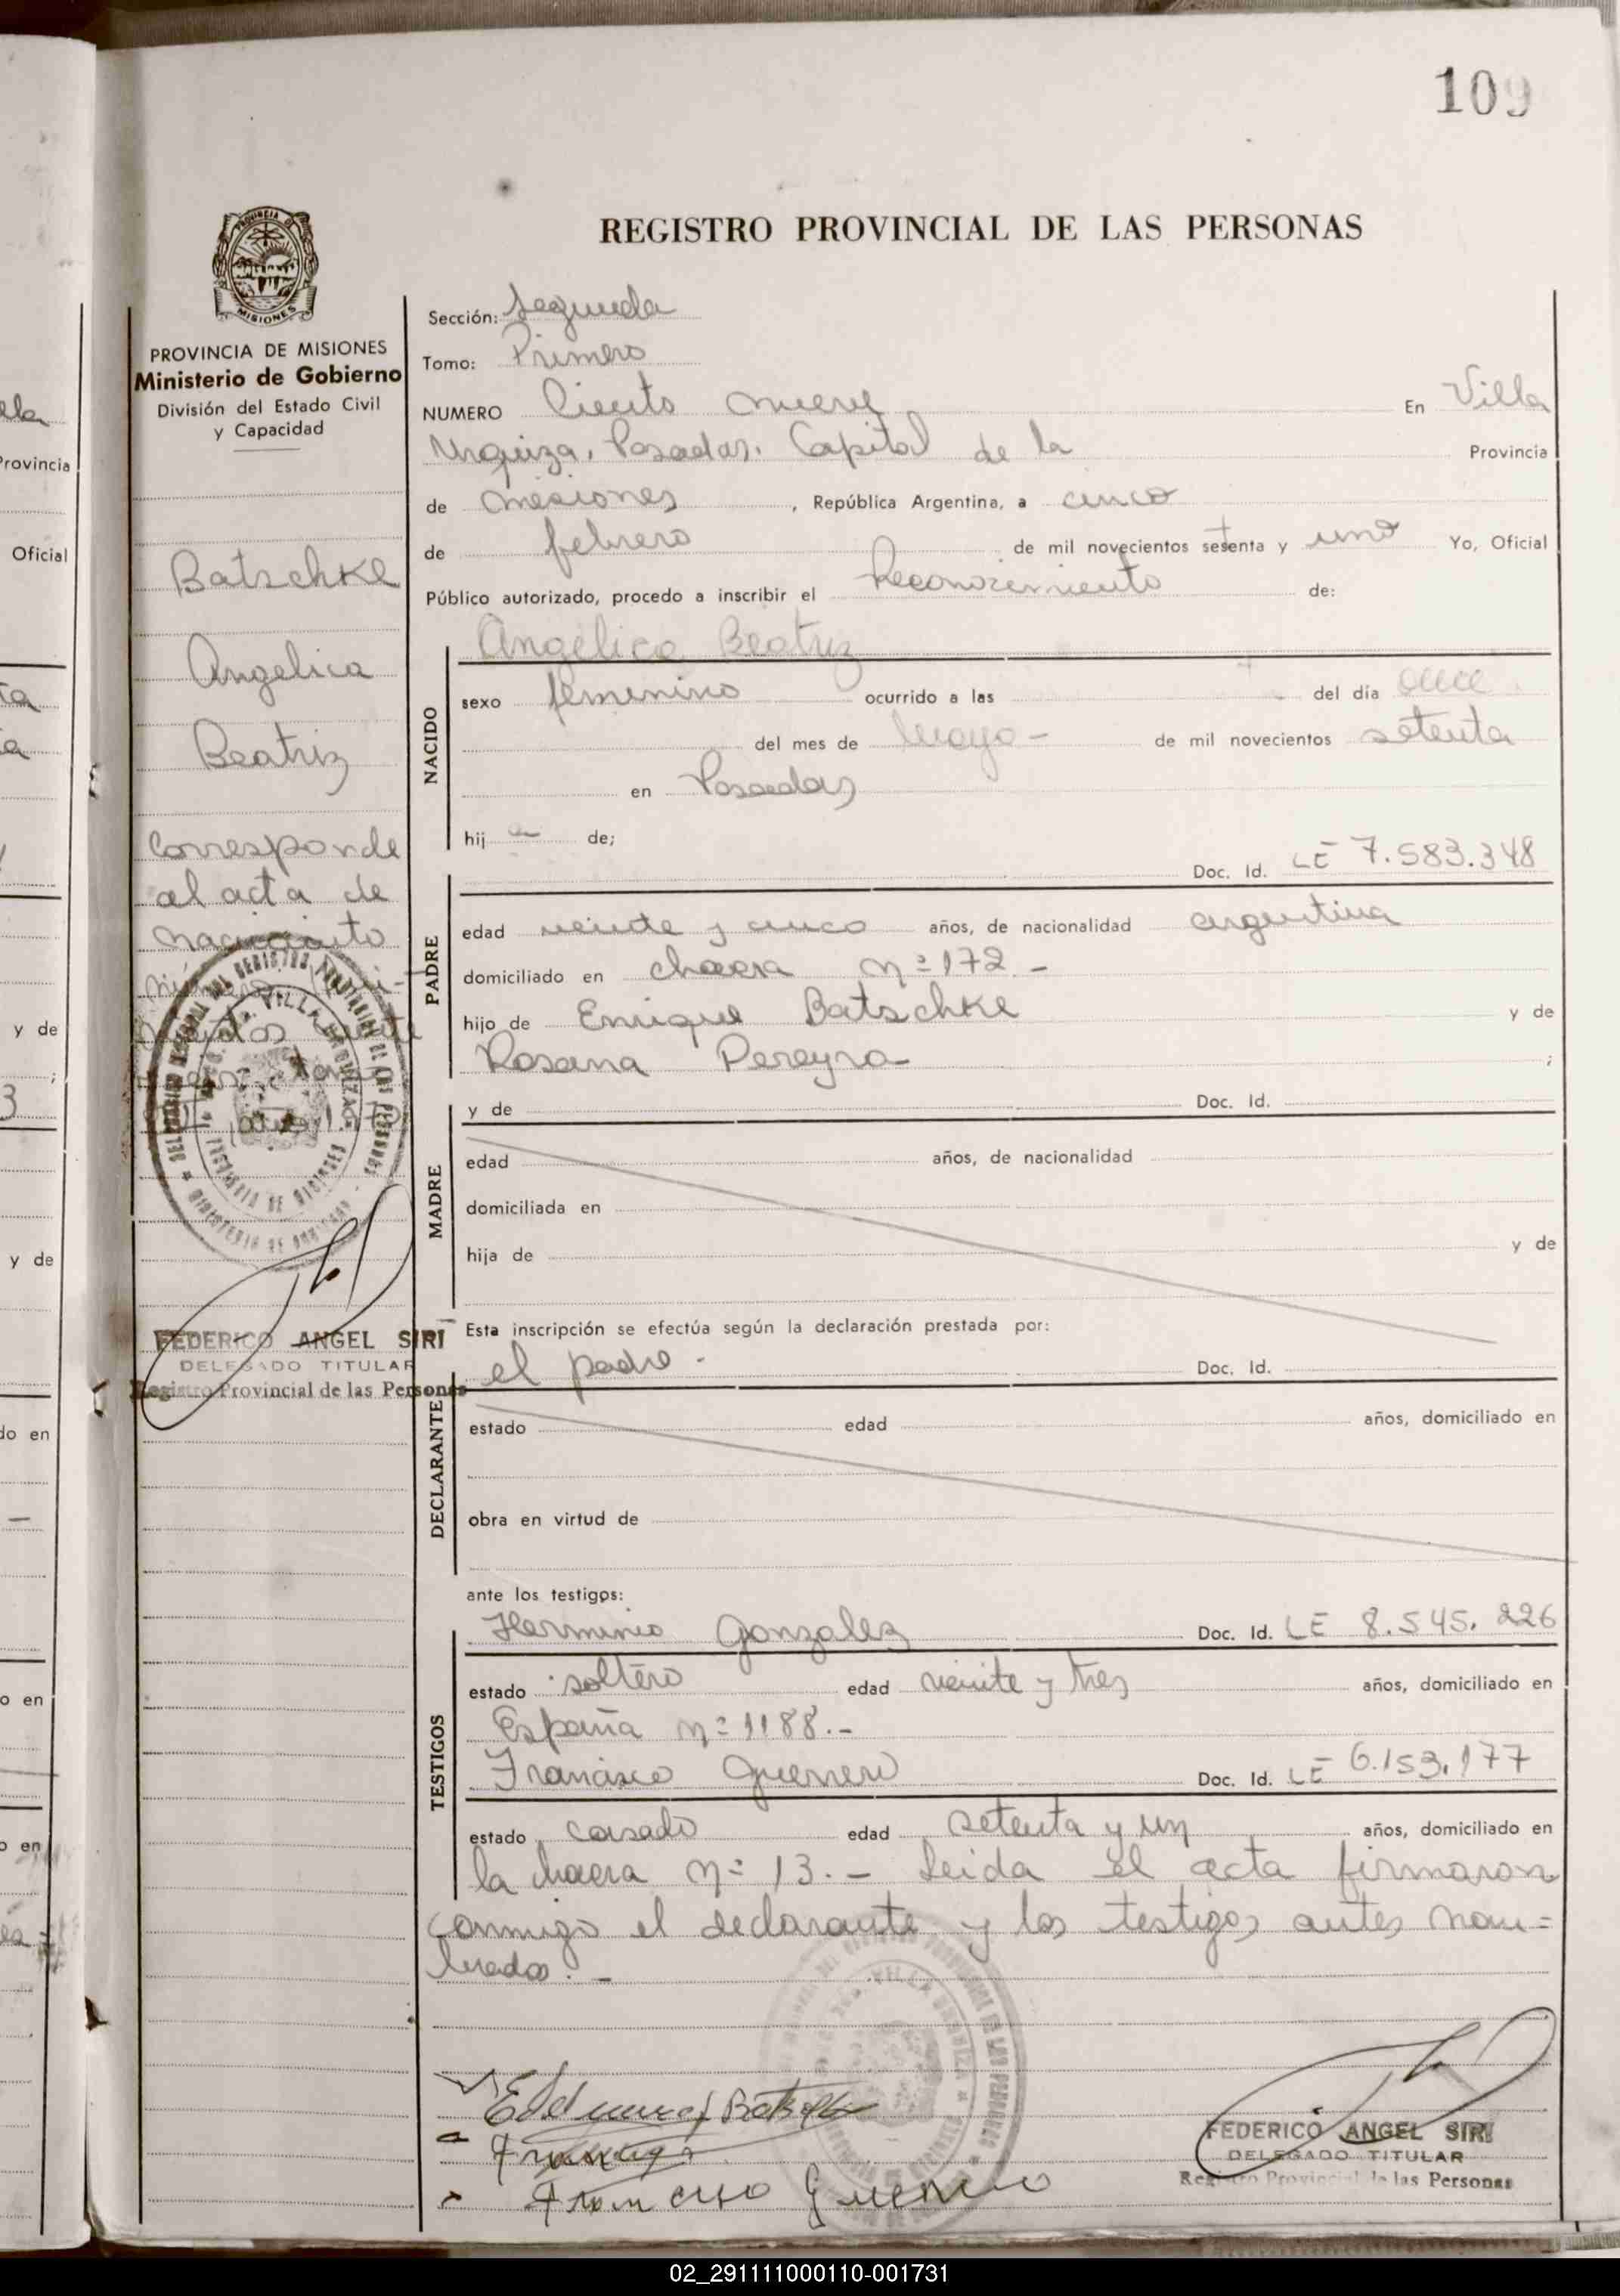 109
REGISTRO PROVINCIAL DE LAS PERSONAS
PROVINCIA DE MISIONES
Ministerio de Gobierno
División del Estado Civil
y Capacidad
Batschke
Angelica
Beatriz
Corresponde
al acta de
nacimiento
Sección: Segunda
Tomo: Primero
NUMERO Ciento nueve En Villa
Urquiza, Posadas. Capital de la Provincia
de Misiones, República Argentina, a cinco
de febrero de mil novecientos setenta y uno Yo, Oficial
Público autorizado, procedo a inscribir el Reconocimiento de:
NACIDO
Angélica Beatriz
sexo femenino ocurrido a las del día once
del mes de Mayo - de mil novecientos setenta
en Posadas
hij a de;
PADRE
Doc. Id. LE 7.583.348
edad veinte y cinco años, de nacionalidad argentina
domiciliado en chacra nº 172 -
hijo de Enrique Batschke y de
Rosana Pereyra ;
MADRE
y de Doc. Id.
edad años, de nacionalidad
domiciliada en
hija de y de
FEDERICO ANGEL SIRI
DELEGADO TITULAR
Registro Provincial de las Personas
Esta inscripción se efectúa según la declaración prestada por:
DECLARANTE
el padre - Doc. Id.
estado edad años, domiciliado en
obra en virtud de
ante los testigos:
TESTIGOS
Herminio Gonzalez Doc. Id. LE 8.545.226
estado soltero edad veinte y tres años, domiciliado en
España nº 1188.-
Francisco Guerrero Doc. Id. LE 6.153.177
estado casado edad setenta y un años, domiciliado en
la chacra nº 13.- Leida el acta firmaron
conmigo el declarante y los testigos antes nom=
brados.-
Francisco Guerrero
FEDERICO ANGEL SIRI
DELEGADO TITULAR
Registro Provincial de las Personas
02_291111000110-001731